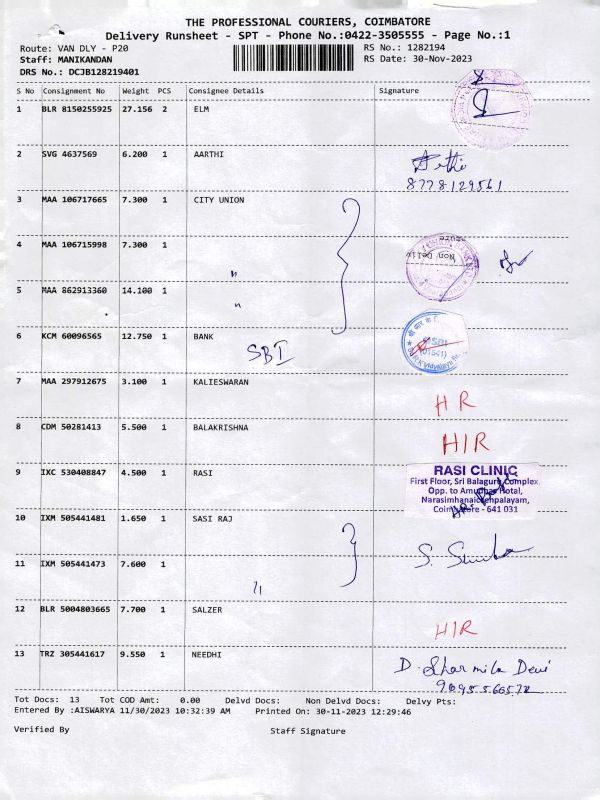 THE PROFESSIONAL COURIERS, COIMBATORE
Delivery Runsheet - SPT - Phone No.:0422-3505555 - Page No.:1
Route: VAN DLY - P20 RS No.: 1282194
Staff: MANIKANDAN RS Date: 30-Nov-2023
DRS No.: DCJB128219401
S No Consignment No Weight PCS Consignee Details Signature
1 BLR 8150255925 27.156 2 ELM
2 SVG 4637569 6.200 1 AARTHI
8778129561
3 MAA 106717665 7.300 1 CITY UNION
4 MAA 106715998 7.300 1 Non Deliv
"
5 MAA 862913360 14.100 1 "
6 KCM 60096565 12.750 1 BANK SBI
7 MAA 297912675 3.100 1 KALIESWARAN HR
8 CDM 50281413 5.500 1 BALAKRISHNA H/R
9 IXC 530408847 4.500 1 RASI
RASI CLINIC
First Floor, Sri Balaguru Complex,
Opp. to Hotal,
Coimbatore - 641 031
10 IXM 505441481 1.650 1 SASI RAJ
11 IXM 505441473 7.600 1 "
12 BLR 5004803665 7.700 1 SALZER H/R
13 TRZ 305441617 9.550 1 NEEDHI D. Sharmila Devi
Tot Docs: 13 Tot COD Amt: 0.00 Delvd Docs: Non Delvd Docs: Delvy Pts:
Entered By :AISWARYA 11/30/2023 10:32:39 AM Printed On: 30-11-2023 12:29:46
Verified By Staff Signature